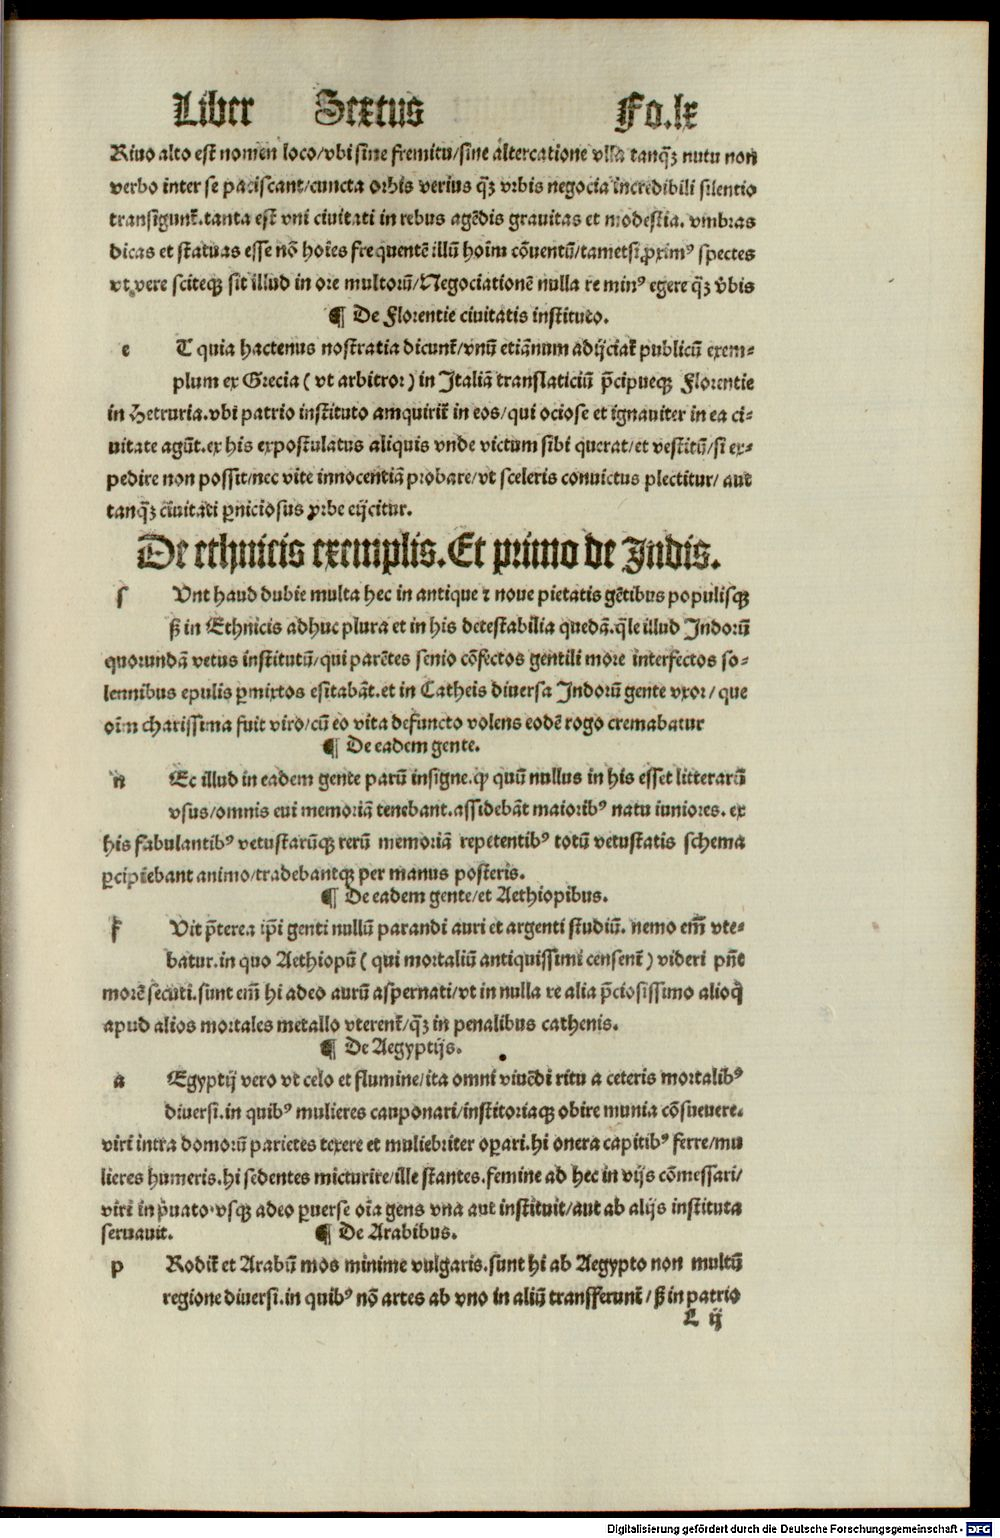 Liber Sextus Fo.lx
Riuo alto est nomen loco/vbi sine fremitu/sine altercatione vlla tanq̃ꝫ nutu non
verbo inter se paciscant/cuncta orbis verius q̃ꝫ vrbis negocia incredibili silentio
transigunt̃.tanta est vni ciuitati in rebus agẽdis grauitas et modestia. vmbras
dicas et statuas esse nõ hoĩes frequentẽ illũ hoĩm cõuentũ/tametsi ꝓximꝰ spectes
vt vere sciteqꝫ sit illud in ore multorũ/Negociationẽ nulla re minꝰ egere q̃ꝫ v̉bis
¶ De Florentie ciuitatis instituto.
e T quia hactenus nostratia dicunt̃/vnũ etiãnum adijciat̃ publicũ exem-
plum ex Grecia ( vt arbitror ) in Italiã translaticiũ p̃cipueqꝫ Florentie
in Hetruria.vbi patrio instituto amquirit̃ in eos/qui ociose et ignauiter in ea ci-
uitate agũt.ex his expostulatus aliquis vnde victum sibi querat/et vestitũ/si ex-
pedire non possit/nec vite innocentiã probare/vt sceleris conuictus plectitur/ aut
tanq̃ꝫ ciuitati ꝑniciosus vrbe eijcitur.
De ethnicis exemplis. Et primo de Indis.
s Vnt haud dubie multa hec in antique ⁊ noue pietatis gẽtibus populisqꝫ
ß in Ethnicis adhuc plura et in his detestabilia quedã.q̃le illud Indorũ
quorundã vetus institutũ/qui parẽtes senio cõfectos gentili more interfectos so-
lennibus epulis ꝑmixtos esitabãt.et in Catheis diuersa Indorũ gente vxor/ que
oĩm charissima fuit viro/cũ eo vita defuncto volens eodẽ rogo cremabatur
¶ De eadem gente.
n Ec illud in eadem gente parũ insigne.ꝙ quũ nullus in his esset litterarũ
vsus/omnis eui memoriã tenebant.assidebãt maioribꝰ natu iuniores. ex
his fabulantibꝰ vetustarũqꝫ rerũ memoriã repetentibꝰ totũ vetustatis schema
ꝑcipiebant animo/tradebantqꝫ per manus posteris.
¶ De eadem gente/et Aethiopibus.
f Vit p̃terea ip̃i genti nullũ parandi auri et argenti studiũ. nemo em̃ vte-
batur.in quo Aethiopũ ( qui mortaliũ antiquissimi censent̃ ) videri pñt
morẽ secuti.sunt em̃ hi adeo aurũ aspernati/vt in nulla re alia p̃ciosissimo alioq̃
apud alios mortales metallo vterent̃/q̃ꝫ in penalibus cathenis.
¶ De Aegyptijs.
a Egyptij vero vt celo et flumine/ita omni viuẽdi ritu a ceteris mortalibꝰ
diuersi.in quibꝰ mulieres cauponari/institoriaqꝫ obire munia cõsueuere.
viri intra domorũ parietes texere et muliebriter oꝑari.hi onera capitibꝰ ferre/mu
lieres humeris.hi sedentes micturire/ille stantes.femine ad hec in vijs cõmessari/
viri in p̃uato.vsqꝫ adeo ꝑuerse oĩa gens vna aut instituit/aut ab alijs instituta
seruauit. ¶ De Arabibus.
p Rodit̃ et Arabũ mos minime vulgaris.sunt hi ab Aegypto non multũ
regione diuersi.in quibꝰ nõ artes ab vno in aliũ transfferunt̃/ ß in patrio
L ij
Digitalisierung gefördert durch die Deutsche Forschungsgemeinschaft - DFG